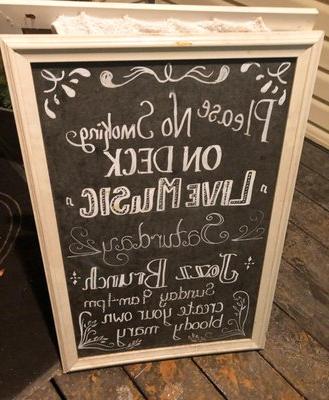 Please No Smoking
ON DECK
"LIVE MUSIC"
Saturday
Jazz Brunch
Sunday 9am-1pm
create your own
bloody mary